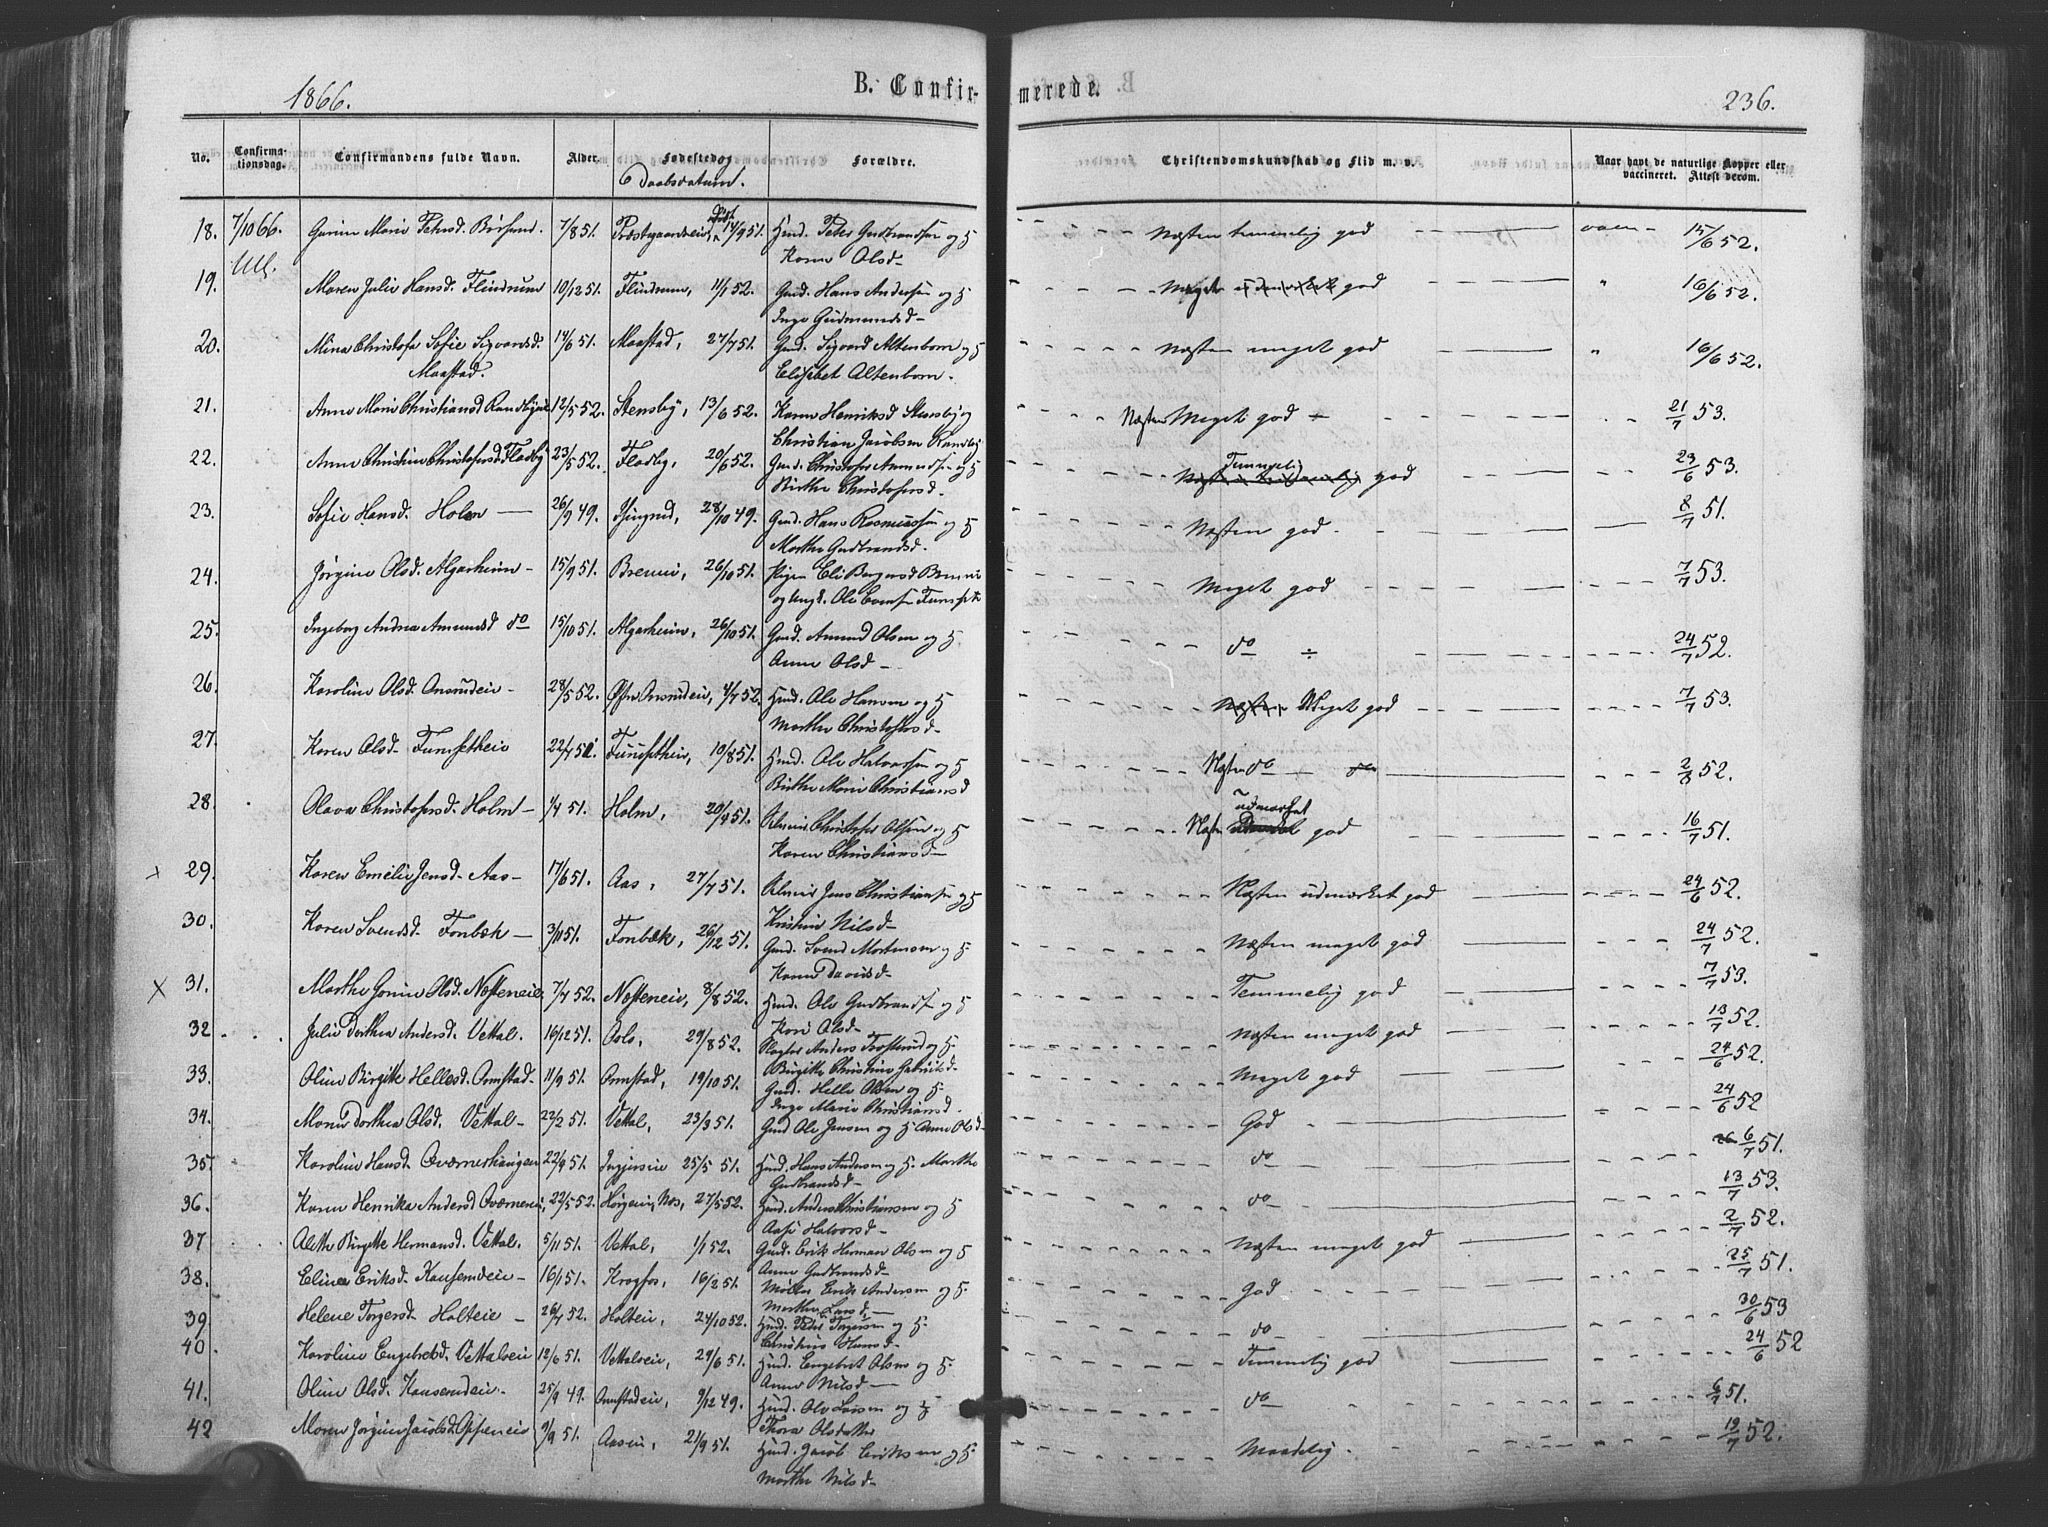 1866.
B. Confirmerede.
236.
No. Confirmationsdag. Confirmandens fulde Navn. Alder. Fødested og Daabsdatum. Forældre. Christendomskundskab og Flid m. v. Naar havt de naturlige Kopper eller vaccineret. Attest derom.
18. 7/10 66. Marie Petersd. 7/8 51. Præstgaardseie, 14/9 51. Husd. Peter Gudbrandsen og H Næsten temmelig god 15/6 52.
Ull. Karen Olsd.
19. Maren Julie Hansd. Flindrum 10/12 51. Flindrum, 11/1 52. Gmd. Hans Andersen og H Meget god " 16/6 52.
Inge Gudmundsd.
20. Mina Christofa Sofie Sigvardsd. 14/6 51. Maastad, 27/7 51. Gmd. Sigvard Altenborn og H Næsten meget god " 16/6 52.
Maastad. Elisabet Altenborn.
21. Anne Marie Christiansd Randbyeie 12/5 52. Stensby, 13/6 52. Karen Henriksd Stensby og Næsten Meget god 21/7 53.
Christian Jacobsen Randby
22. Anne Christine Christofersd Fladby 23/5 52. Fladby, 20/6 52. Gmd. Christofer Amundsen og H Temmelig god 23/6 53.
Birthe Christofersd.
23. Sofie Hansd. Holm 26/9 49. 28/10 49. Gmd. Hans Rasmussen og H Næsten god. 8/7 51.
Marthe Gudbrandsd.
24. Jørgine Olsd. Algarheim 15/9 51. Brenni, 26/10 51. Pigen Eli Brenni Meget god 7/7 53.
og Ungk. Ole Evensen
25. Ingeborg Andrea Amundsd do 15/10 51. Algarheim, 26/10 51. Gmd. Amund Olsen og H do 24/7 52.
Anne Olsd
26. Karoline Olsd. 28/5 52. 4/7 52. Husd. Ole Hansen og H Meget god 7/7 53.
Marthe Christofersd
27. Karen Olsd. Funnsetheie 22/7 51. Funnsetheie, 10/8 51. Husd. Ole Halvorsen og H Næsten do 2/8 52.
Birthe Marie Christiansd
28. Olava Christofersd. Holm 1/4 51. Holm, 20/4 51. Christofer Olsen og H Næsten udmærket god 16/7 51.
Karen Christiansd
x 29. Karen Emelie Jensd. Aas 17/6 51. Aas, 27/7 51. Jens Christiansen og H Næsten udmærket god 24/6 52.
Kristine Nilsd
30. Karen Svendsd. Fonbæk 3/11 51. Fonbæk, 26/12 51. Gmd. Svend Mortensen og H Næsten meget god 24/7 52.
Karen Davidsd
x 31. Marthe Gorine Olsd. Næsteneie 7/7 52. Næsteneie, 8/8 52. Husd. Ole Gudbrandsen og H Temmelig god 7/7 53.
Kari Olsd
32. Julie Dorthea Andersd. Vettal. 16/12 51. Oslo, 29/8 52. Anders og H. Næsten meget god 13/7 52.
Birgitte Christine
33. Oline Birgitte Hellesd. Ormstad 11/9 51. Ormstad, 19/10 51. Gmd. Helle Olsen og H Meget god 24/6 52.
Inge Marie Christiansd.
34. Maren Dorthea Olsd. Vettal 22/2 51. Vettal, 23/3 51. Gmd Ole Jensen og H Anne Olsd God 24/6 52
35. Karoline Hansd. 22/4 51. 25/5 51. Husd. Hans Andersen og H. Marthe do 6/7 51.
Gudbrandsd
36. Karen Henrika Andersd 22/5 52. Næs, 27/5 52. Husd. Anders Christiansen og H do 13/7 53.
Aase Halvorsd
37 Alethe Birgitte Hermansd. Vettal. 5/11 51. Vettal, 1/1 52. Gmd. Erik Herman Olsen og H Næsten meget god 2/7 52.
Anne Gudbrandsd
38. Elinea Eriksd. 16/1 51. Krogfos, 16/2 51. Møller Erik Andersen og H. God 25/7 51.
Marthe Larsd.
39 Helene Torgersd. Holteie 26/7 52. Holteie, 24/10 52. Husd. Peder Torgersen og H. do 30/6 53
Christine Hansd
40. Karoline Engebretsd. Vettaleie 12/6 51. Vettaleie, 29/6 51. Husd. Engebret Olsen og H. Temmelig god 24/6 52
Anne Nilsd
41. Oline Olsd. 25/9 49. Ormstadeie, 9/12 49. Husd. Ole Larsen og H do 6/7 51.
Thora Olsdatter
42 Maren Jørgine Jacobsd. 9/9 51. Aaseie, 21/9 51. Husd. Jacob Eriksen og H. Maadelig. 19/7 52.
Marthe Nilsd